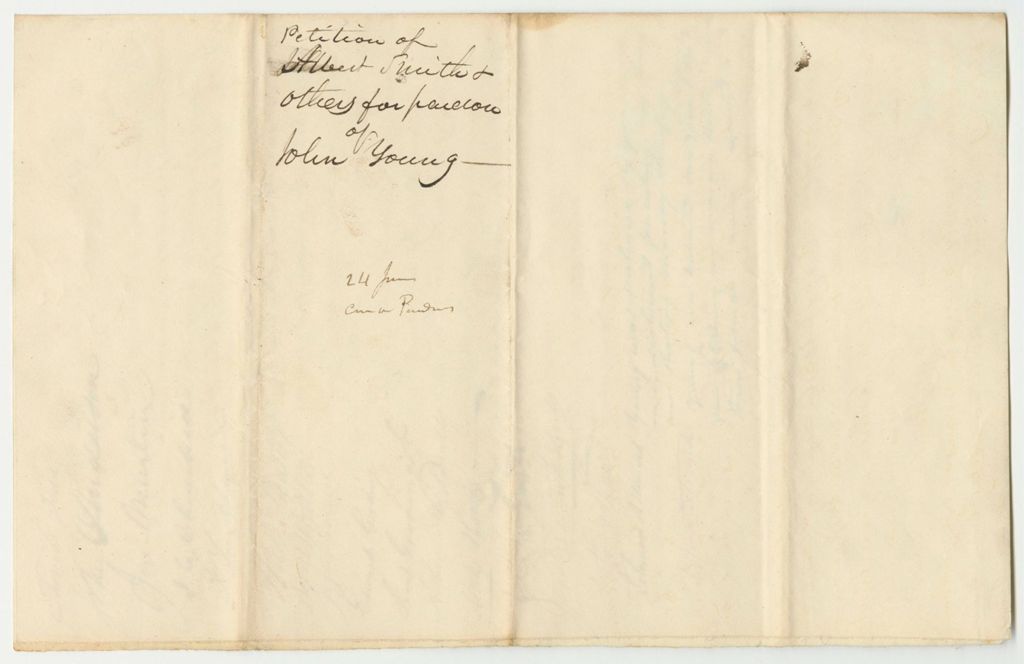 Petition of
Albert Smith &
others for pardon
of
John Young —
24 June
Com on Pardons